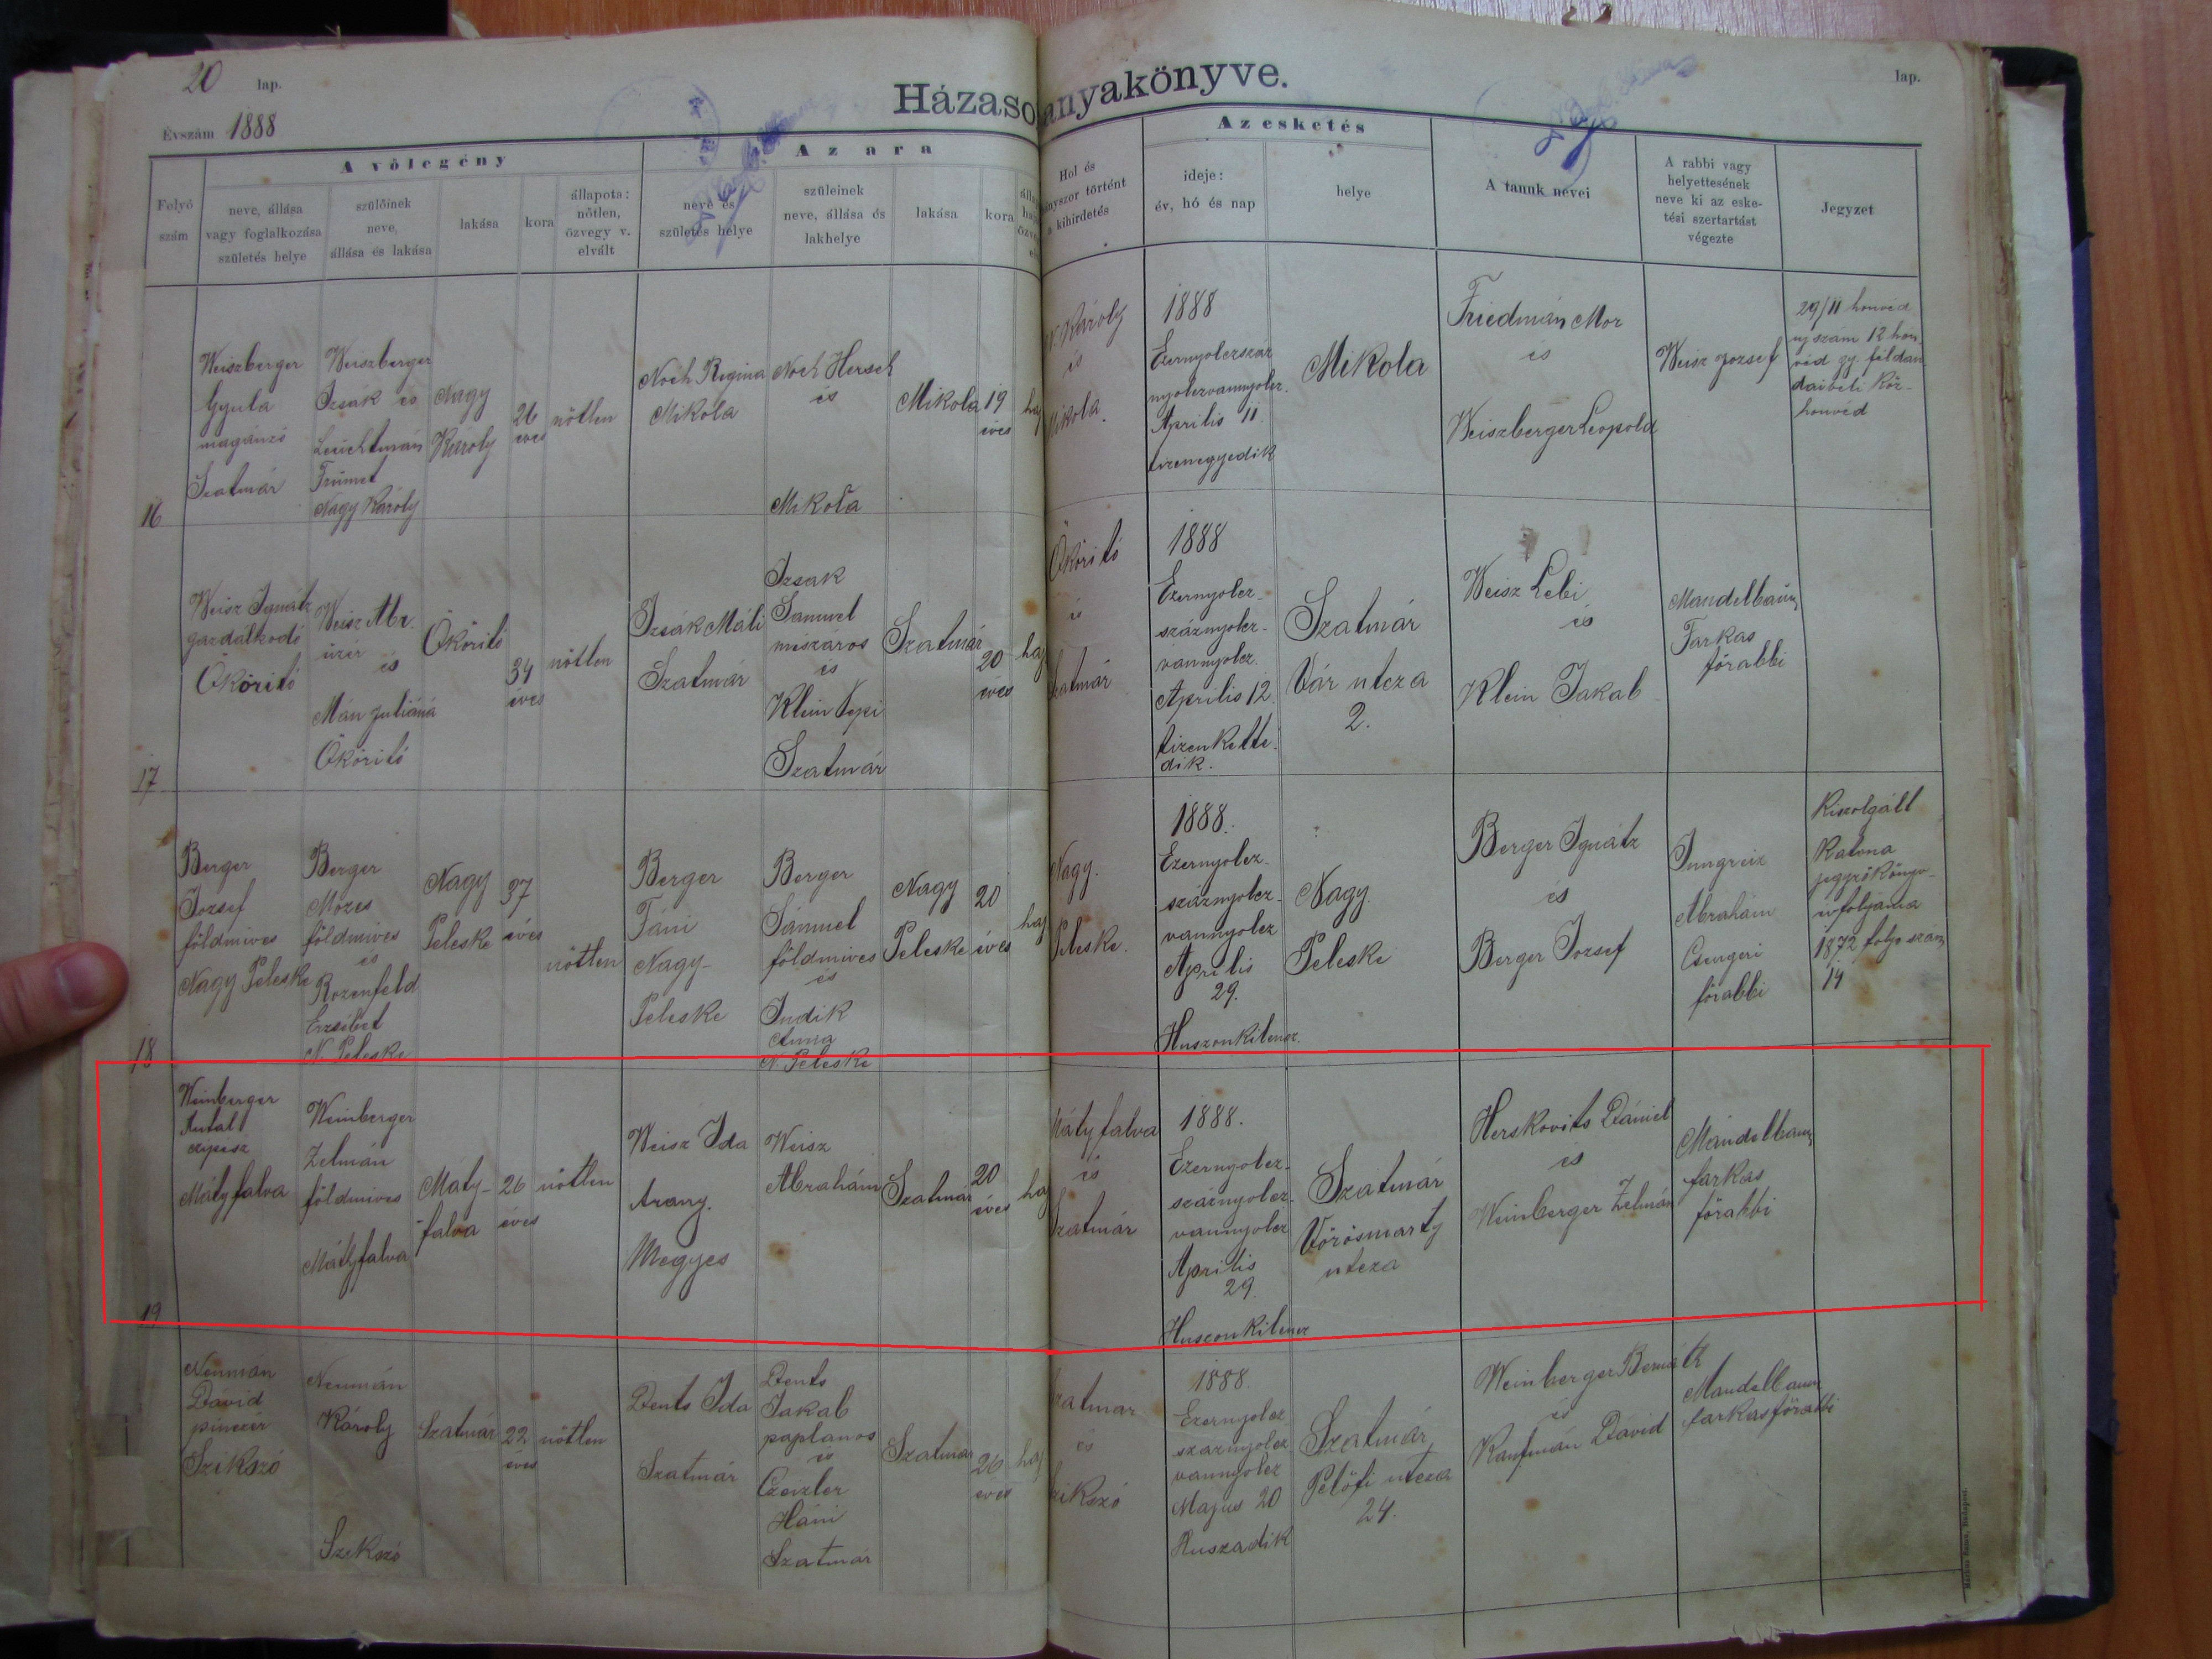 20 lap.
Házaso anyakönyve.
lap.
Évszám 1888
A vőlegény
Az ara
Az esketés
Folyó
szám
neve, állása
vagy foglalkozása
születés helye
szülőinek
neve,
állása és lakása
lakása
kora
állapota:
nőtlen,
özvegy v.
elvált
neve és
születés helye
szüleinek
neve, állása és
lakhelye
lakása
kora
Hol és
ányszor történt
a kihirdetés
ideje:
év, hó és nap
helye
A tanuk nevei
A rabbi vagy
helyettesének
neve ki az eske-
tési szertartást
végezte
Jegyzet
16
Weiszberger
Gyula
magánzó
Szatmár
Weiszberger
Izsák és
Leuchtmán
Frimet
Nagy Károly
Nagy
Károly
26
éves
nőtlen
Noch Regina
Mikola
Noch Hersch
és
Mikola
Mikola
19
éves
haj
N. Károly
és
Mikola.
1888
Ezernyolczszáz
nyolczvannyolcz.
Április 11.
tizenegyedik
Mikola
Friedmán Mor
és
Weiszberger Leopold
Weisz Jozsef
29/II honvéd
uj szám 12 hon-
véd gy. féldan
daibeli köz-
honvéd
17
Weisz Ignátz
gazdálkodó
Ököritó
Weisz Abr.
üzér
és
Mán Juliáná
Ököritó
Ököritó
34
éves
nőtlen
Izsák Máli
Szatmár
Izsak
Samuel
mészáros
és
Klein Pepi
Szatmár
Szatmár
20
éves
haj
Ököritó
és
Szatmár
1888
Ezernyolcz-
száznyolcz-
vannyolcz.
Április 12
tizenkette-
dik.
Szatmár
Vár utcza
2.
Weisz Lebi
és
Klein Jakab
Mandelbaum
Farkas
főrabbi
18
Berger
Jozsef
földmives
Nagy Peleske
Berger
Mózes
földmives
és
Rozenfeld
Erzsébet
N. Peleske
Nagy
Peleske
37
éves
nőtlen
Berger
Fáni
Nagy-
Peleske
Berger
Sámuel
földmives
és
Indik
Anna
N. Peleske
Nagy
Peleske
20
éves
haj
Nagy.
Peleske.
1888.
Ezernyolcz-
száznyolcz-
vannyolcz
Április
29.
Huszonkilencz.
Nagy
Peleske
Berger Ignátz
és
Berger Jozsef
Jungreiz
Abrahám
Csengeri
főrabbi
Kiszolgált
Katona
jegyzőkönyv-
ivfolyama
1872 folyo szám
14
19
Weinberger
Antal
czipész
Mátyfalva
Weinberger
Zelmán
földmives
Mátyfalva
Máty-
falva
26
éves
nőtlen
Weisz Ida
Arany.
Megyes
Weisz
Abrahám
Szatmár
20
éves
haj
Mátyfalva
és
Szatmár
1888.
Ezernyolcz-
száznyolcz-
vannyolcz
Április
29.
Huszonkilencz
Szatmár
Vörösmarty
utcza
Herskovits Dániel
és
Weinberger Zelmán
Mandelbaum
farkas
főrabbi
Neumán
Dávid
pinczér
Szikszó
Neumán
Károly
Szikszó
Szatmár
22
éves
nőtlen
Dents Ida
Szatmár
Dents
Jakab
paplanos
és
Czeizler
Háni
Szatmár
Szatmár
26
éves
haj
Szatmar
és
Szikszó
1888.
Ezernyolcz
száznyolcz
vannyolcz
Majus 20
Huszadik
Szatmár
Petőfi utcza
24.
Weinberger Bernátk
és
Kaufmán Dávid
Mandelbaum
farkas főrabbi